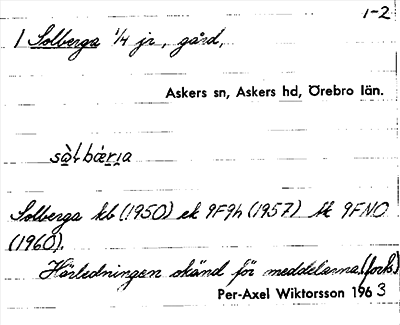 1-2
1 Solberga 1/4 jr, gård,
Askers sn, Askers hd, Örebro län.
sòlbærɩa
Solberga kb (1950) ek 9F9h (1957) tk 9FNO
(1960).
Härledningen okänd för meddelarna (fork)
Per-Axel Wiktorsson 1963